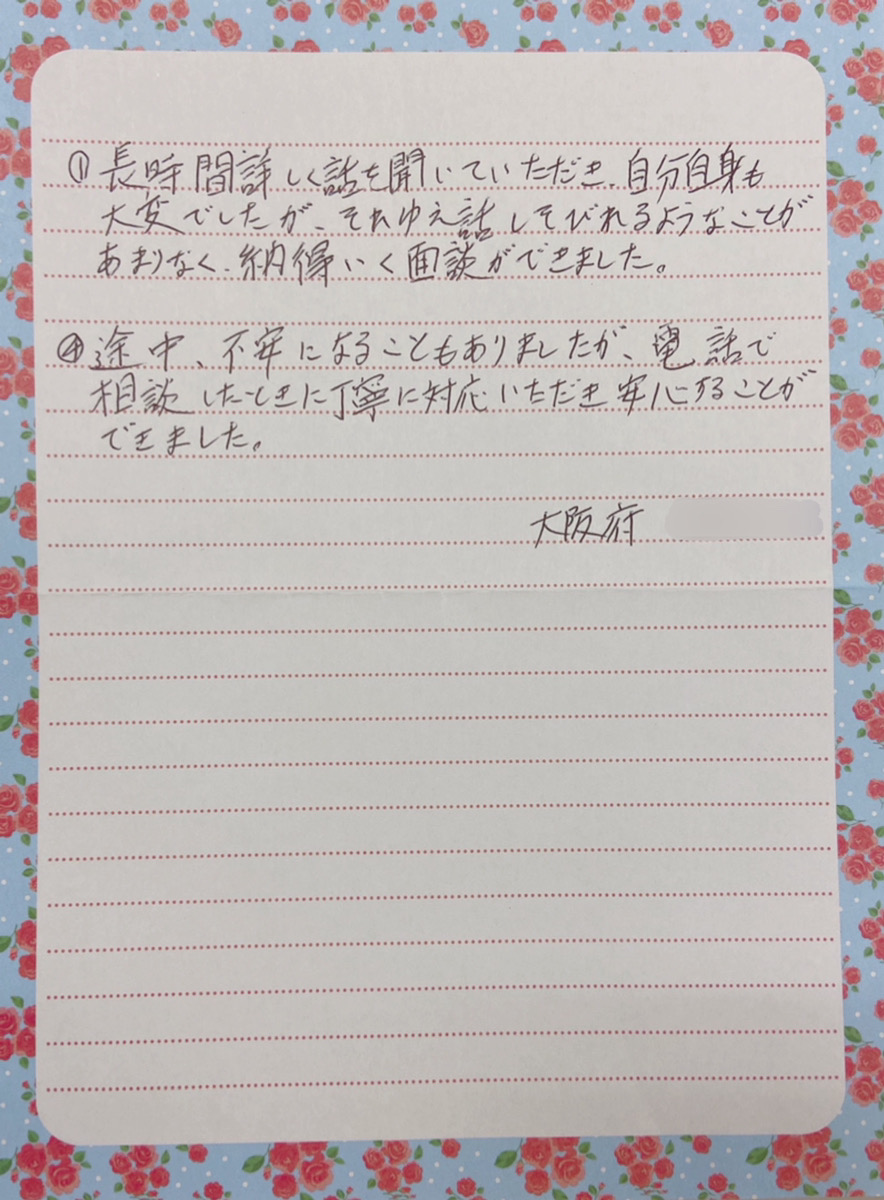 ①長時間詳しく話を聞いていただき、自分自身も
大変でしたが、それゆえ話しそびれるようなことが
あまりなく、納得いく面談ができました。
④途中、不安になることもありましたが、電話で
相談したときに丁寧に対応いただき安心することが
できました。
大阪府